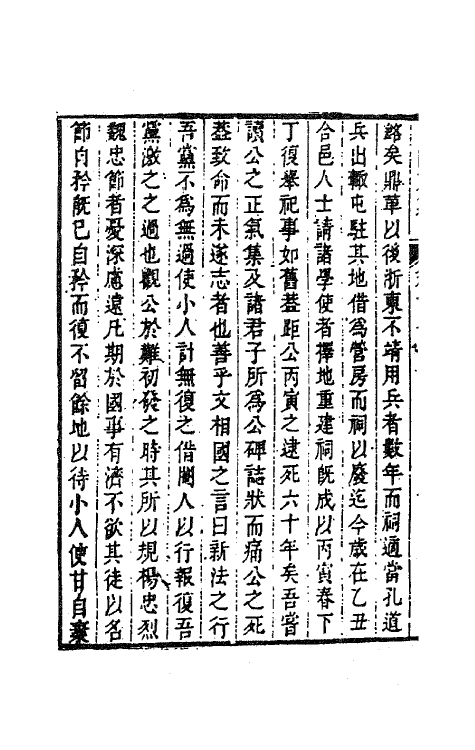 路矣鼎革以後浙東不靖用兵者數年而祠適當孔道
兵出輙屯駐其地借為營房而祠以廢迄今歲在乙丑
合邑人士請諸學使者擇地重建祠旣成以丙寅春下
丁復舉祀事如舊葢距公丙寅之逮死六十年矣吾嘗
讀公之正氣集及諸君子所為公碑誌狀而痛公之死
葢致命而未遂志者也善乎文相國之言曰新法之行
吾黨不為無過使小人計無復之借閹人以行報復吾
黨激之之過也觀公於難初發之時其所以規楊忠烈
魏忠節者憂深慮遠凡期於國事有濟不欲其徒以名
節自矜旣已自矜而復不留餘地以待小人使甘自棄